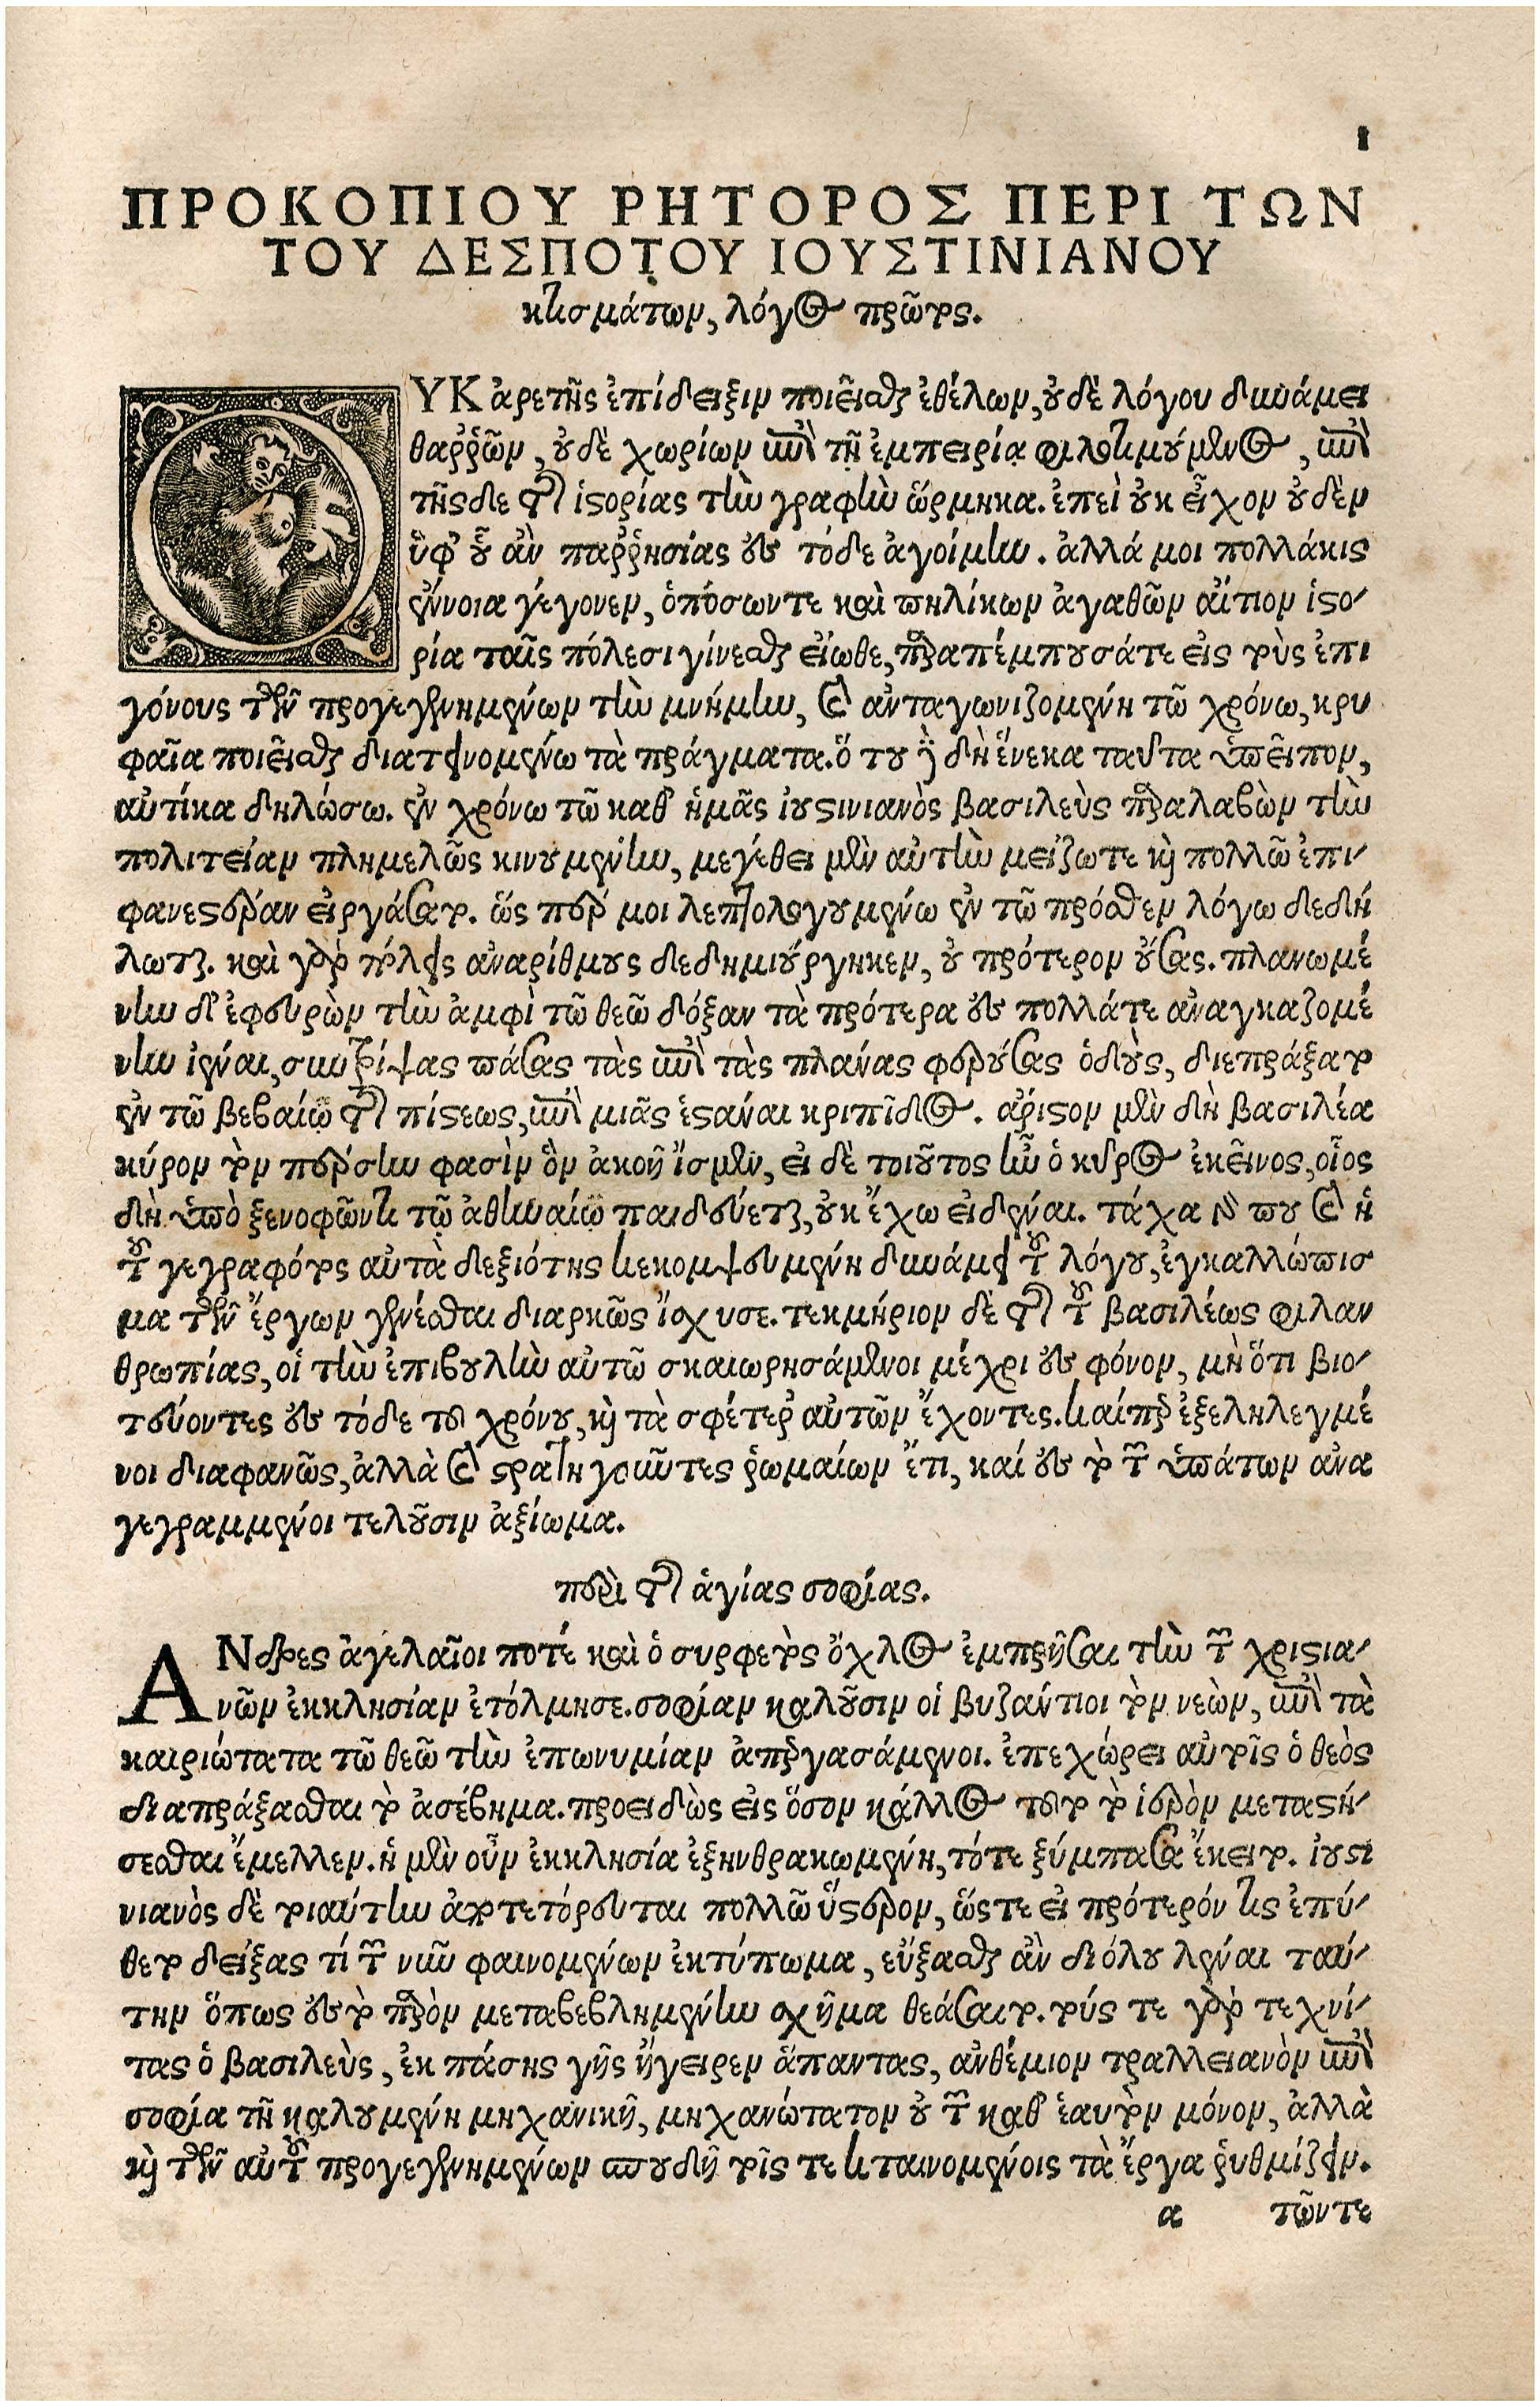 1
ΠΡΟΚΟΠΙΟΥ ΡΗΤΟΡΟΣ ΠΕΡΙ ΤΩΝ
ΤΟΥ ΔΕΣΠΟΤΟΥ ΙΟΥΣΤΙΝΙΑΝΟΥ
κτισμάτων, λόγος πρῶτος.
ΟΥΚ ἀρετῆς ἐπίδειξιν ποιεῖσθαι ἐθέλων, οὐδὲ λόγου δυνάμει
θαῤῥῶν, οὐδὲ χωρίων ἐπὶ τῇ ἐμπειρίᾳ φιλοτιμούμενος, ἐπὶ
τῆσδε τῆς ἱστορίας τὴν γραφὴν ὥρμηκα. ἐπεὶ οὐκ εἶχον οὐδὲν
ὑφ' οὗ ἂν παῤῥησίας ἐς τόδε ἀγοίμην. ἀλλά μοι πολλάκις
ἔννοια γέγονεν, ὁπόσωντε καὶ πηλίκων ἀγαθῶν αἴτιον ἱστο-
ρία ταῖς πόλεσι γίνεσθαι εἴωθε, παραπέμπουσάτε εἰς τοὺς ἐπι
γόνους τῶν προγεγενημένων τὴν μνήμην, καὶ ἀνταγωνιζομένη τῷ χρόνω, κρυ
φαῖα ποιεῖσθαι διατεινομένω τὰ πράγματα. ὅ του δὲ δὴ ἕνεκα ταῦτα ὑπεῖπον,
αὐτίκα δηλώσω. ἐν χρόνω τῷ καθ' ἡμᾶς ἰουστινιανὸς βασιλεὺς παραλαβὼν τὴν
πολιτείαν πλημελῶς κινουμένην, μεγέθει μὲν αὐτὴν μείζωτε καὶ πολλῶ ἐπι-
φανεστέραν εἰργάσατο. ὥς περ μοι λεπτολογουμένω ἐν τῷ πρόσθεν λόγω δεδή
λωται. καὶ γὰρ πόλεις ἀναρίθμους δεδημιούργηκεν, οὐ πρότερον οὔσας. πλανωμέ
νην δ' ἐφευρὼν τὴν ἀμφὶ τῷ θεῷ δόξαν τὰ πρότερα ἐς πολλάτε ἀναγκαζομέ
νην ἰέναι, συντρίψας πάσας τὰς ἐπὶ τὰς πλάνας φερούσας ὁδοὺς, διεπράξατο
ἐν τῷ βεβαίῳ τῆς πίστεως, ἐπὶ μιᾶς ἑστάναι κριπῖδος. ἄριστον μὲν δὴ βασιλέα
κύρον τὸν πέρσην φασὶν ὃν ἀκοῇ ἴσμεν, εἰ δὲ τοιοῦτος ἦν ὁ κῦρος ἐκεῖνος, οἷος
δὴ ὑπὸ ξενοφῶντι τῷ ἀθηναίῳ παιδεύεται, οὐκ ἔχω εἰδέναι. τάχα γάρ που καὶ ἡ
τοῦ γεγραφότος αὐτὰ δεξιότης κεκομψευμένη δυνάμει τοῦ λόγου, ἐγκαλλώπισ
μα τῶν ἔργων γενέσθαι διαρκῶς ἴσχυσε. τεκμήριον δὲ τῆς τοῦ βασιλέως φιλαν
θρωπίας, οἱ τὴν ἐπιβουλὴν αὐτῷ σκαιωρησάμενοι μέχρι ἐς φόνον, μὴ ὅτι βιο-
τεύοντες ἐς τόδε τοῦ χρόνου, καὶ τὰ σφέτερα αὐτῶν ἔχοντες. καίπερ ἐξεληλεγμέ
νοι διαφανῶς, ἀλλὰ καὶ στρατηγοῦντες ῥωμαίων ἔτι, καί ἐς τὸ τῶν ὑπάτων ἀνα
γεγραμμένοι τελοῦσιν ἀξίωμα.
περὶ τῆς ἁγίας σοφίας.
ΑΝδρες ἀγελαῖοι ποτέ καὶ ὁ συρφετὸς ὄχλος ἐμπρῆσαι τὴν τῶν χριστια-
νῶν ἐκκλησίαν ἐτόλμησε. σοφίαν καλοῦσιν οἱ βυζάντιοι τὸν νεὼν, ἐπὶ τὰ
καιριώτατα τῷ θεῷ τὴν ἐπωνυμίαν ἀπεργασάμενοι. ἐπεχώρει αὐτοῖς ὁ θεὸς
διαπράξασθαι τὸ ἀσέβημα. προειδὼς εἰς ὅσον κάλλος τοῦτο τὸ ἱερὸν μεταστή-
σεσθαι ἔμελλεν. ἡ μὲν οὖν ἐκκλησία ἐξηνθρακωμένη, τότε ξύμπασα ἔκειτο. ἰουστι
νιανὸς δὲ τοιαύτην ἀποτετόρευται πολλῷ ὕστερον, ὥστε εἰ πρότερόν τις ἐπύ-
θετο δείξας τί τῶν νῦν φαινομένων ἐκτύπωμα, εὔξασθαι ἂν διόλου λέναι ταύ-
την ὅπως ἐς τὸ παρὸν μεταβεβλημένην σχῆμα θεάσαιτο. τούς τε γὰρ τεχνί-
τας ὁ βασιλεὺς, ἐκ πάσης γῆς ἤγειρεν ἅπαντας, ἀνθέμιον τραλλειανὸν ἐπὶ
σοφία τῇ καλουμένη μηχανικῇ, μηχανώτατον οὐ τῶν καθ' ἑαυτὸν μόνον, ἀλλὰ
καὶ τῶν αὐτοῦ προγεγενημένων σπουδῇ τοῖς τε κταινομένοις τὰ ἔργα ῥυθμίζειν.
α τῶντε